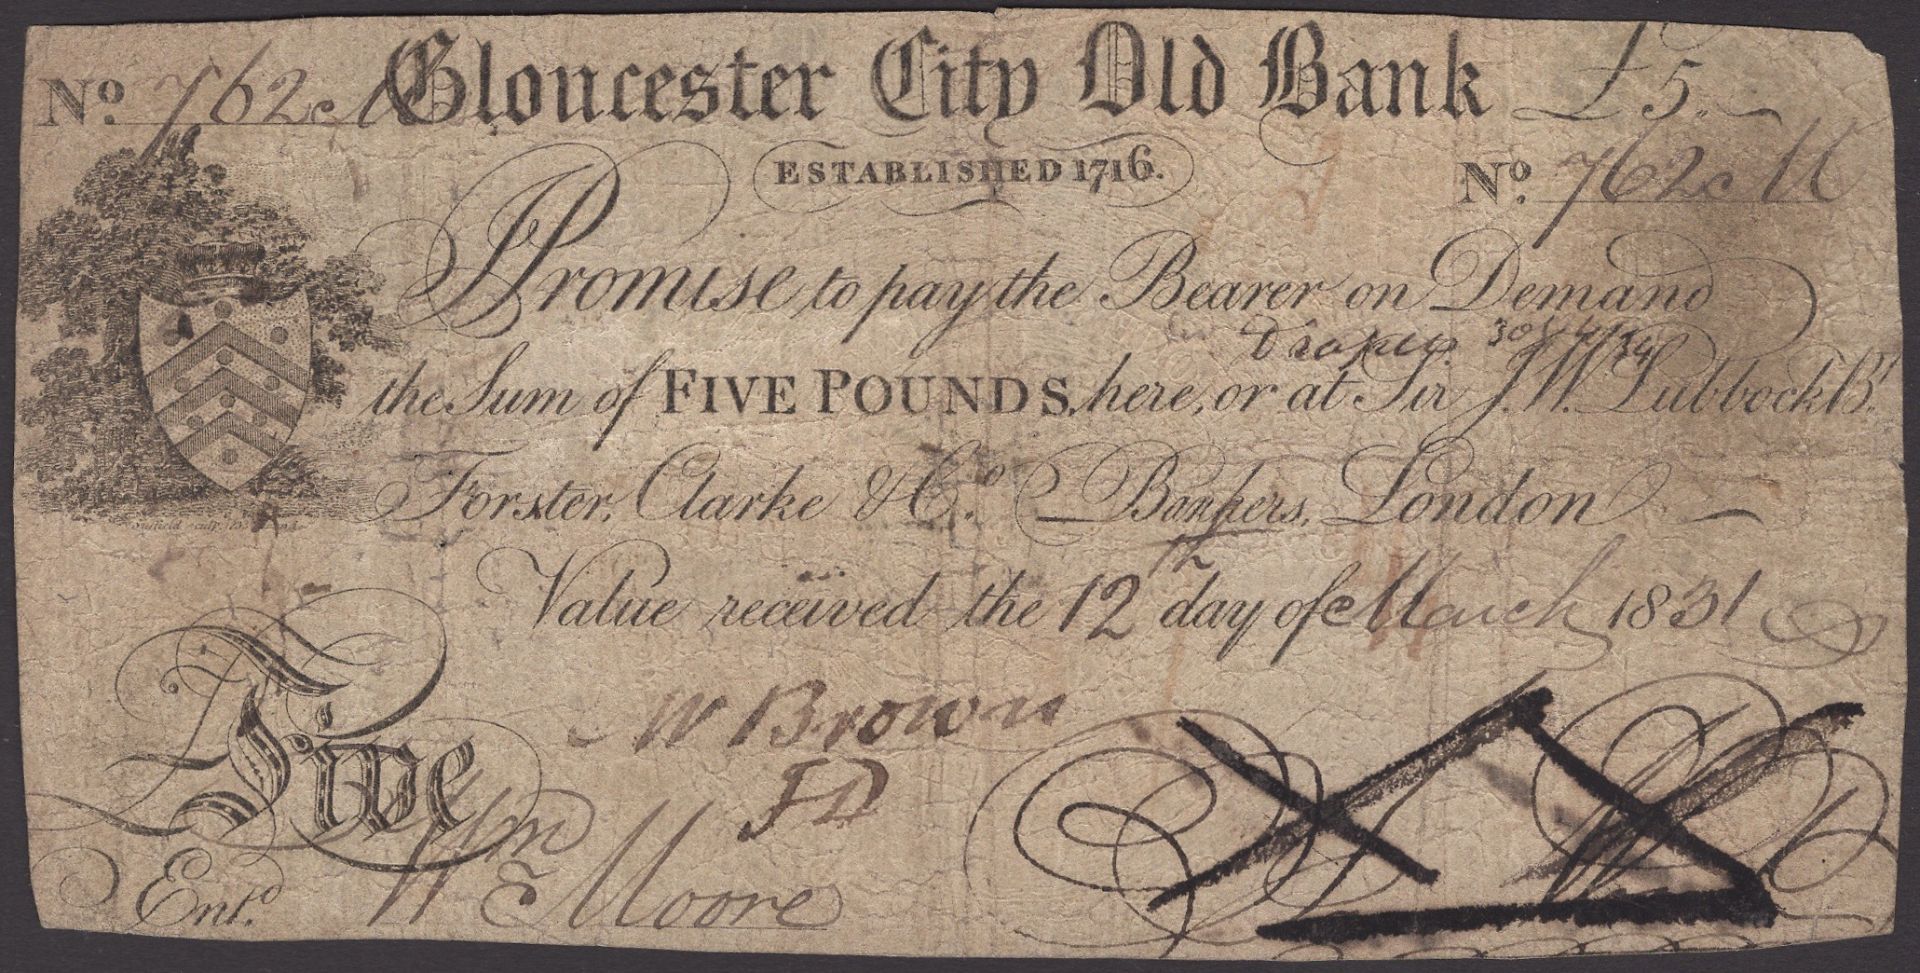 No. 762 M Gloucester City Old Bank £5.
ESTABLISHED 1716.
No. 762 M
I Promise to pay the Bearer on Demand
the Sum of FIVE POUNDS, here, or at Sir J. W. Lubbock Bt.
Forster, Clarke & Co. Bankers, London
Value received the 12th day of March 1831
W Brown
J D
Five
Entd. Wm Moore